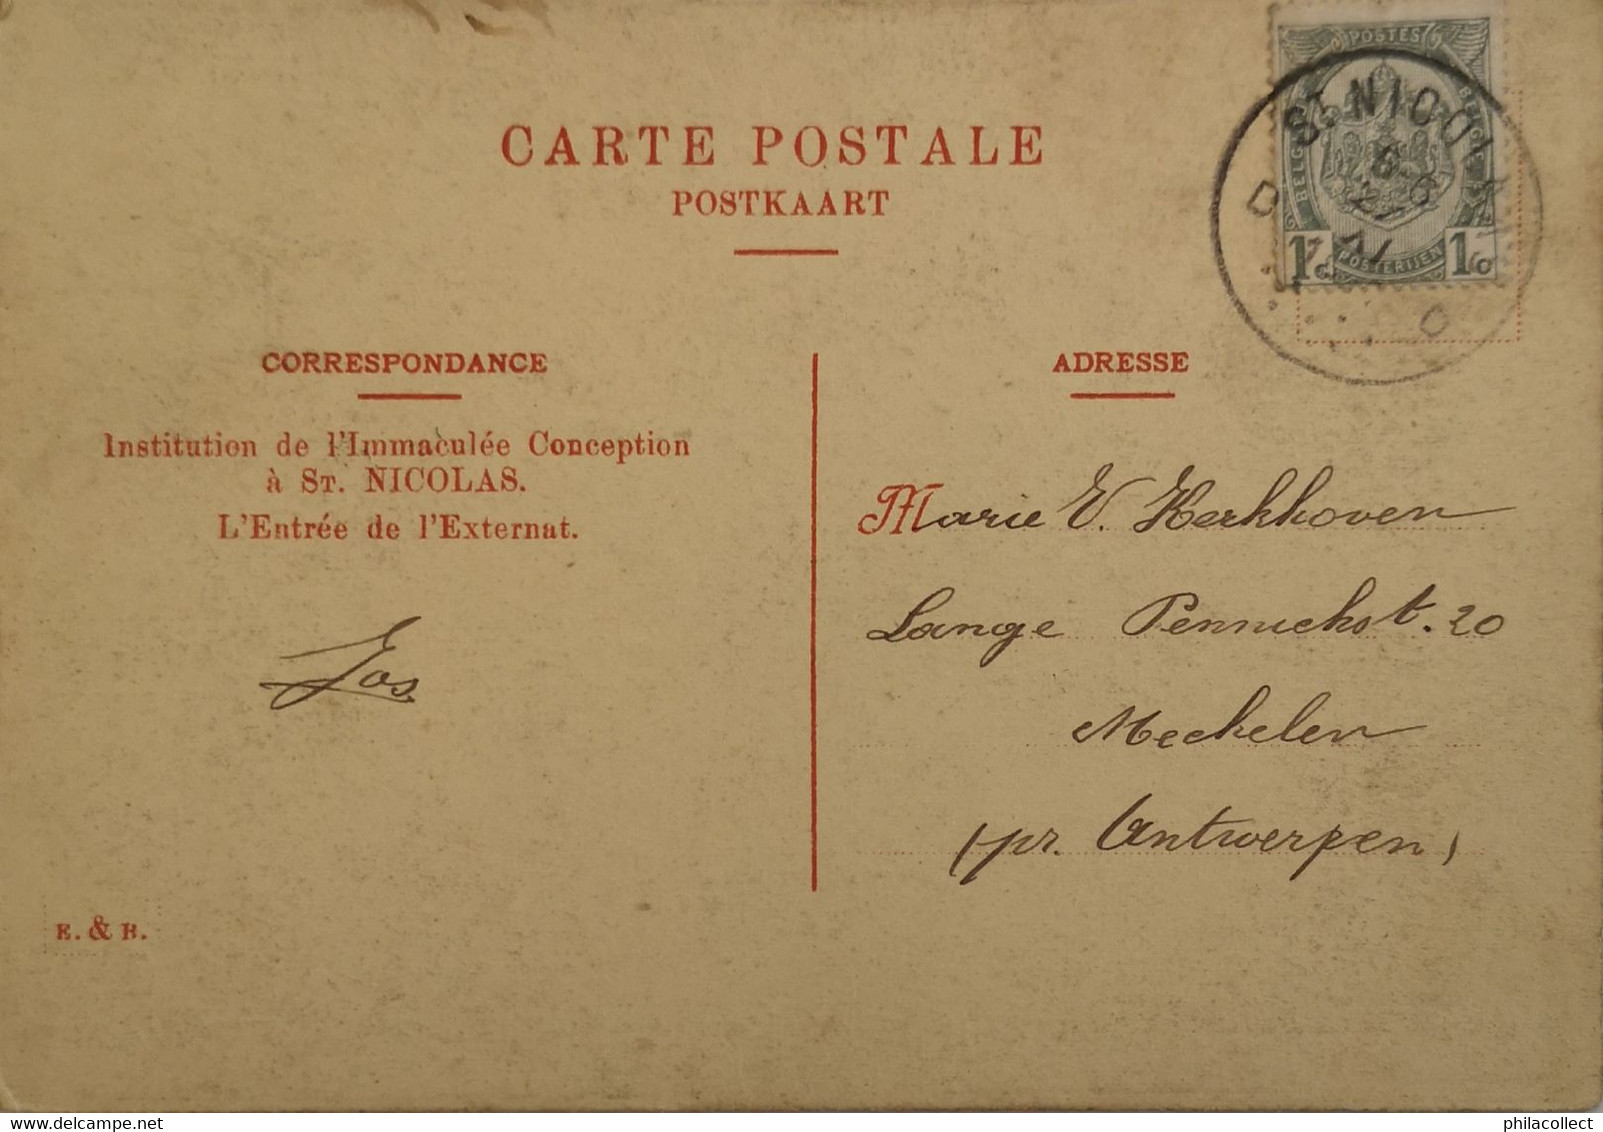 CARTE POSTALE
POSTKAART
POSTES
BELGIQUE
BELGIE
1c POSTERIJEN 1c
ST NICOLA
CORRESPONDANCE
Institution de l'Immaculée Conception
à ST. NICOLAS.
L'Entrée de l'Externat.
Jos
E. & B.
ADRESSE
Marie V. Kerkhoven
Lange 20
Mechelen
(pr. Antwerpen)
philacollect